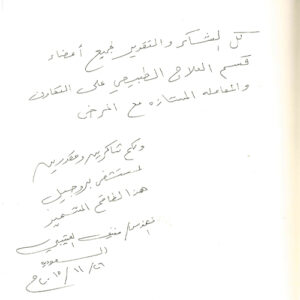 كل الشكر والتقدير لجميع أعضاء
قسم العلاج الطبيعي على التعاون
والمعامله الممتازه مع المرضى
ولكم شاكرين ومقدرين
لمستشفى بروجيل
هذا الطاقم المتميز
العتيبي
السعوديه
٢٦/١١/٢٠١٥م